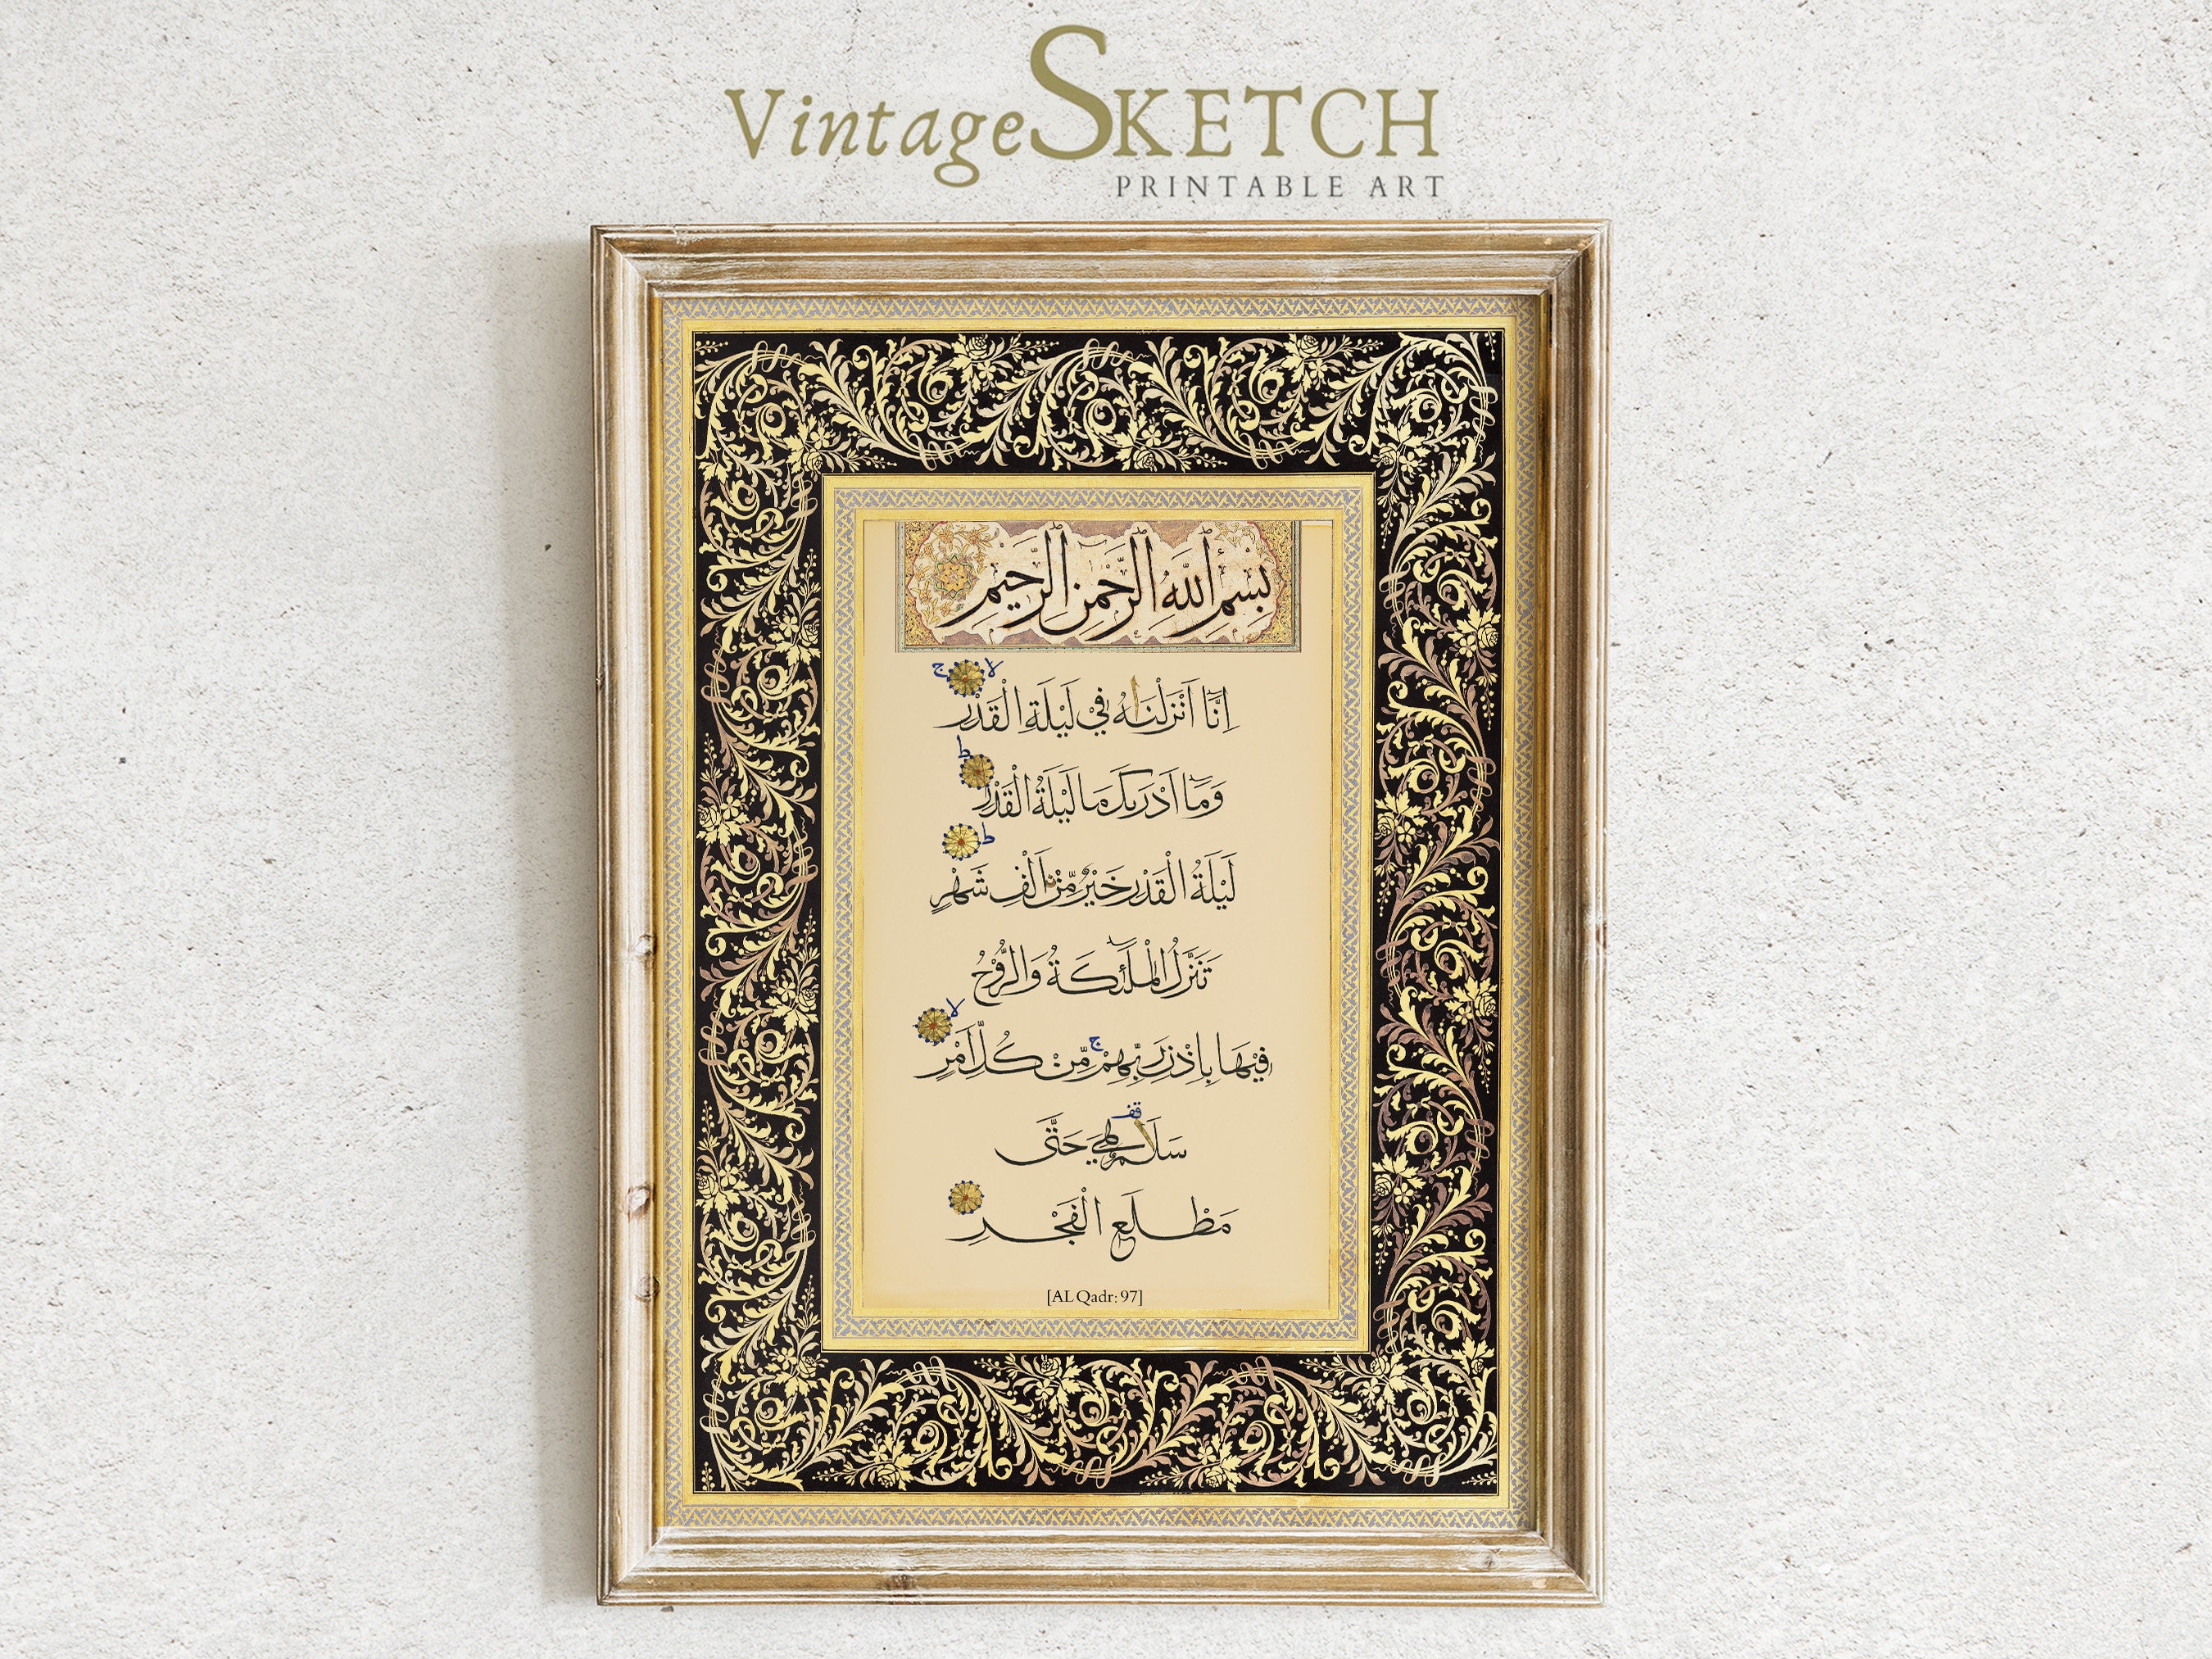 VintageSKETCH
PRINTABLE ART
بِسْمِ اللّٰهِ الرَّحْمٰنِ الرَّحِيْمِ
اِنَّآ اَنْزَلْنٰهُ فِيْ لَيْلَةِ الْقَدْرِ لا ج
وَمَآ اَدْرٰىكَ مَا لَيْلَةُ الْقَدْرِ ط
لَيْلَةُ الْقَدْرِ خَيْرٌ مِّنْ اَلْفِ شَهْرٍ ط
تَنَزَّلُ الْمَلٰٓئِكَةُ وَالرُّوْحُ
فِيْهَا بِاِذْنِ رَبِّهِمْ ج مِّنْ كُلِّ اَمْرٍ لا
سَلٰمٌ قف هِيَ حَتّٰى
مَطْلَعِ الْفَجْرِ
[AL Qadr: 97]